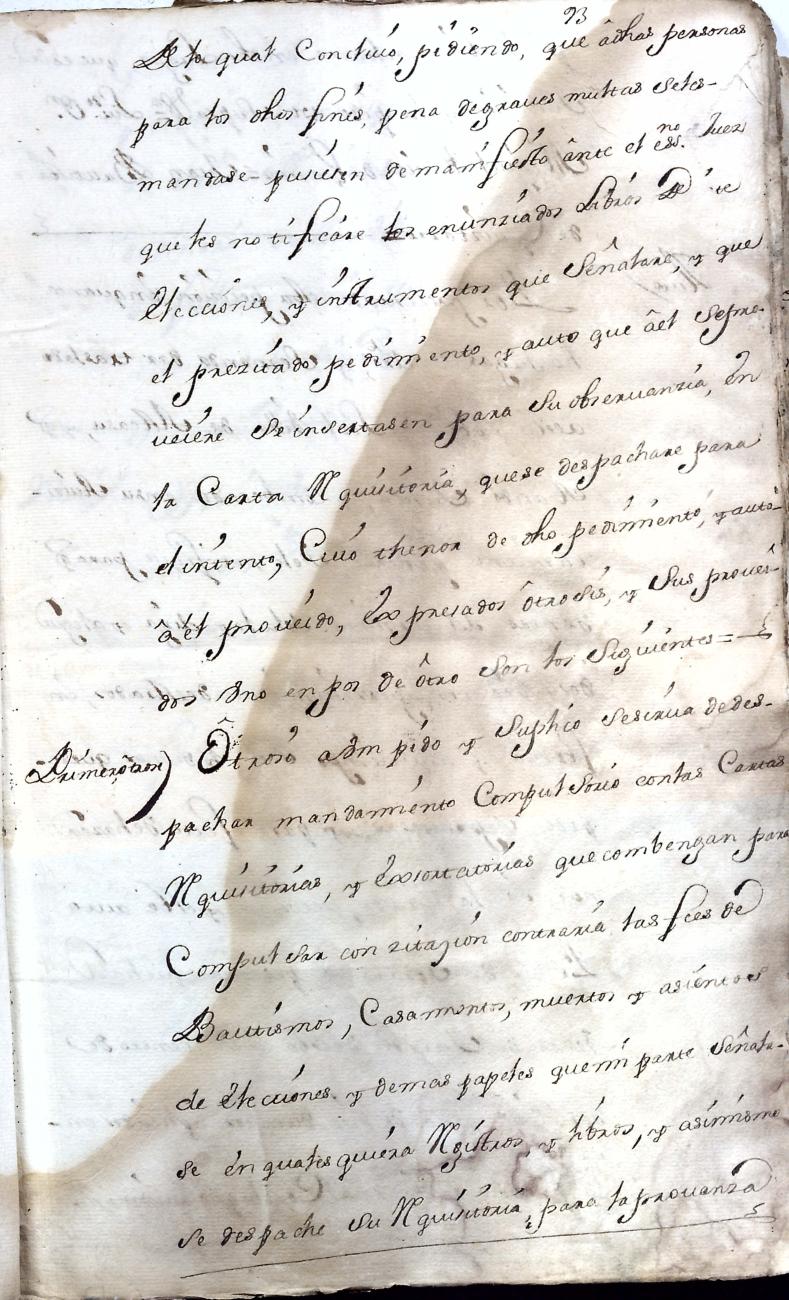 93
De lo qual Concluió, pidiendo, que âdhas personas
para los dhos fines, pena degraves multas seles-
mandase pusiesen demanifiesto ânte el essno. Juez
queles notificáre los enunziados Libros De
Elecciónes, y instrumentos que Señalare, y que
el prezitado pedimiento, y auto que âel sepro-
ueiére se insertasen para Su obseruanzia, en
la Carta Rquisitoria, quese despachare para
el intento, Cuio thenor de dho pedimiento, y auto
â él proveido, Expresados ôtrosis, y Sus provei-
dos Vno en pos de ôtro Son los Siguientes=
Primer ôtrosi) Ôtrosi a Vm pido y Suplico Sesirua dedes-
pachar mandamiento Compulsorio conlas Cartas
Rquisitorias, y Exsortatorias que combengan para
Compulsar con zitazión contraria las fees de
Bautismos, Casamentos, muertos y asientoes
de Elecciónes y demas papeles que mi parte Señala-
se en quales quiera Rgistros, y libros, y asimismo
se despache Su Rquisitoria, para la prouanza